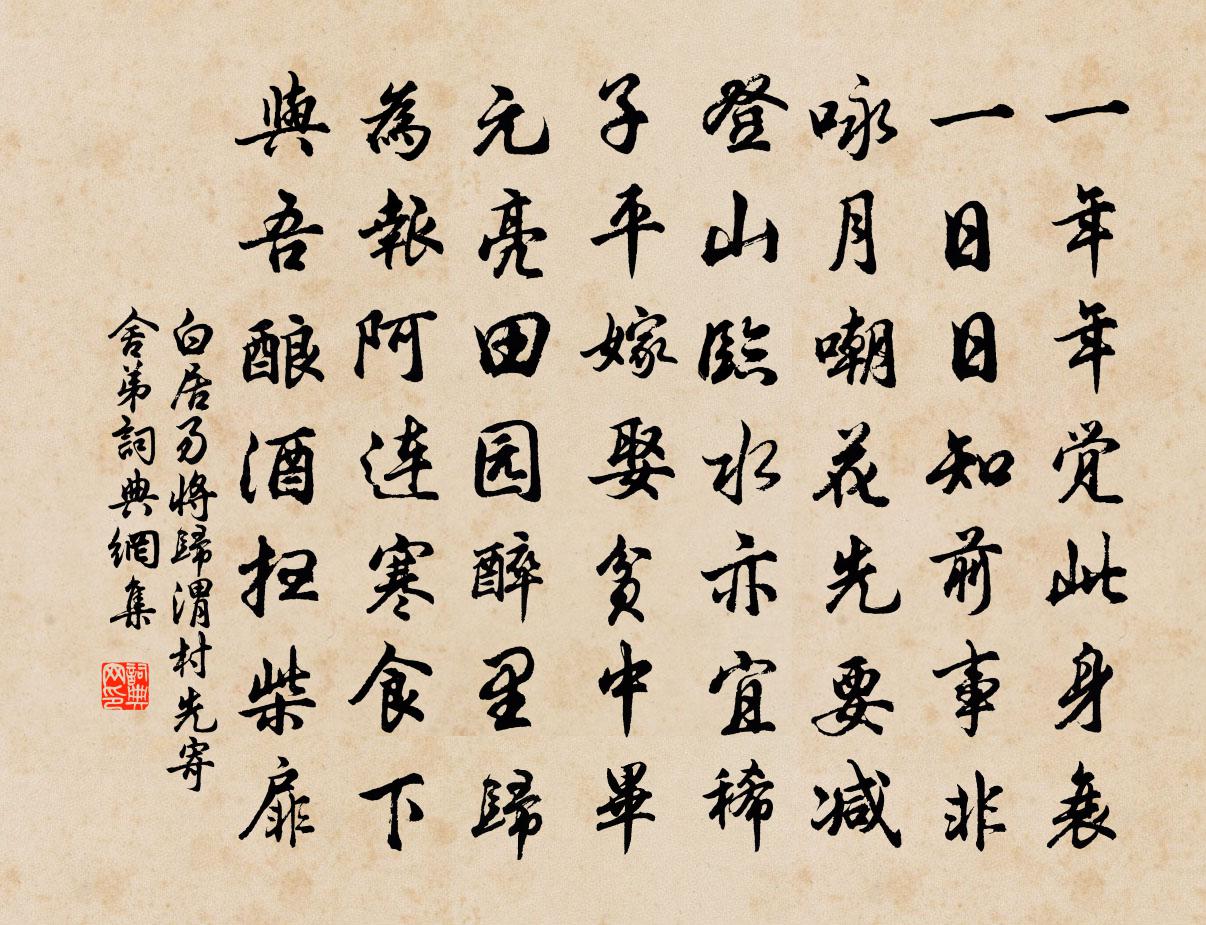 一年年觉此身衰
一日日知前事非
咏月嘲花先要减
登山臨水亦宜稀
子平嫁娶贫中畢
元亮田园醉里歸
為報阿连寒食下
與吾酿酒扫柴扉
白居易將歸渭村先寄
舍弟詞典網集
詞典网印